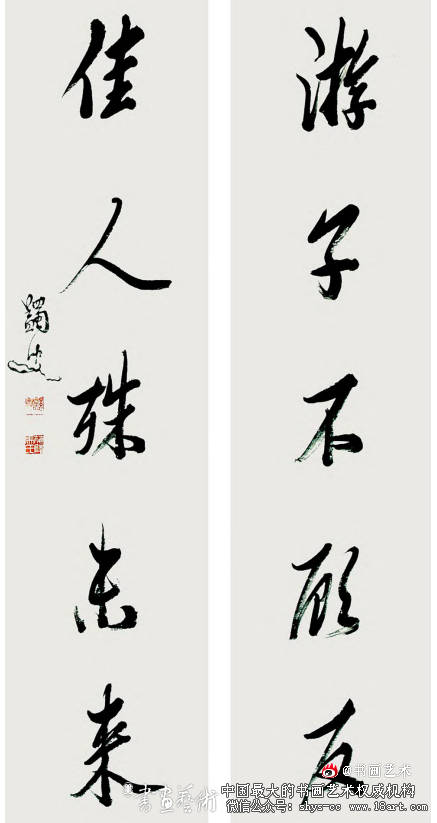 游子不顧反
佳人殊未來
蠲叟
@书画艺术
書畫藝術
中国最大的书画艺术权威机构
微信公众号：shys-cc www.18art.com